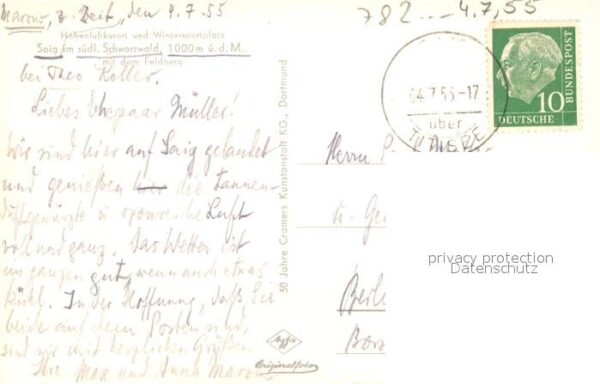 Marow, z. Zeit, den 4.7.55
782 ... 4,7,55
Höhenluftkurort und Wintersportplatz
Saig im südl. Schwarzwald, 1000 m ü. d. M.,
mit dem Feldberg
bei Theo Keller.
Liebes Ehepaar Müller!
Wir sind hier auf Saig gelandet
und genießen hier die Tannen-
duftgewürzte u. ozonreiche Luft
voll und ganz. Das Wetter ist
im ganzen gut, wenn auch etwas
kühl. In der Hoffnung, daß Sie
beide auf dem Posten sind,
sind wir mit herzlichen Grüßen
Ihre Max und Anna
50 Jahre Cramers Kunstanstalt KG., Dortmund
Agfa
Originalfoto
04.7.55-17
über
10
DEUTSCHE
BUNDESPOST
Herrn P
u. Ge
Berl
privacy protection
Datenschutz